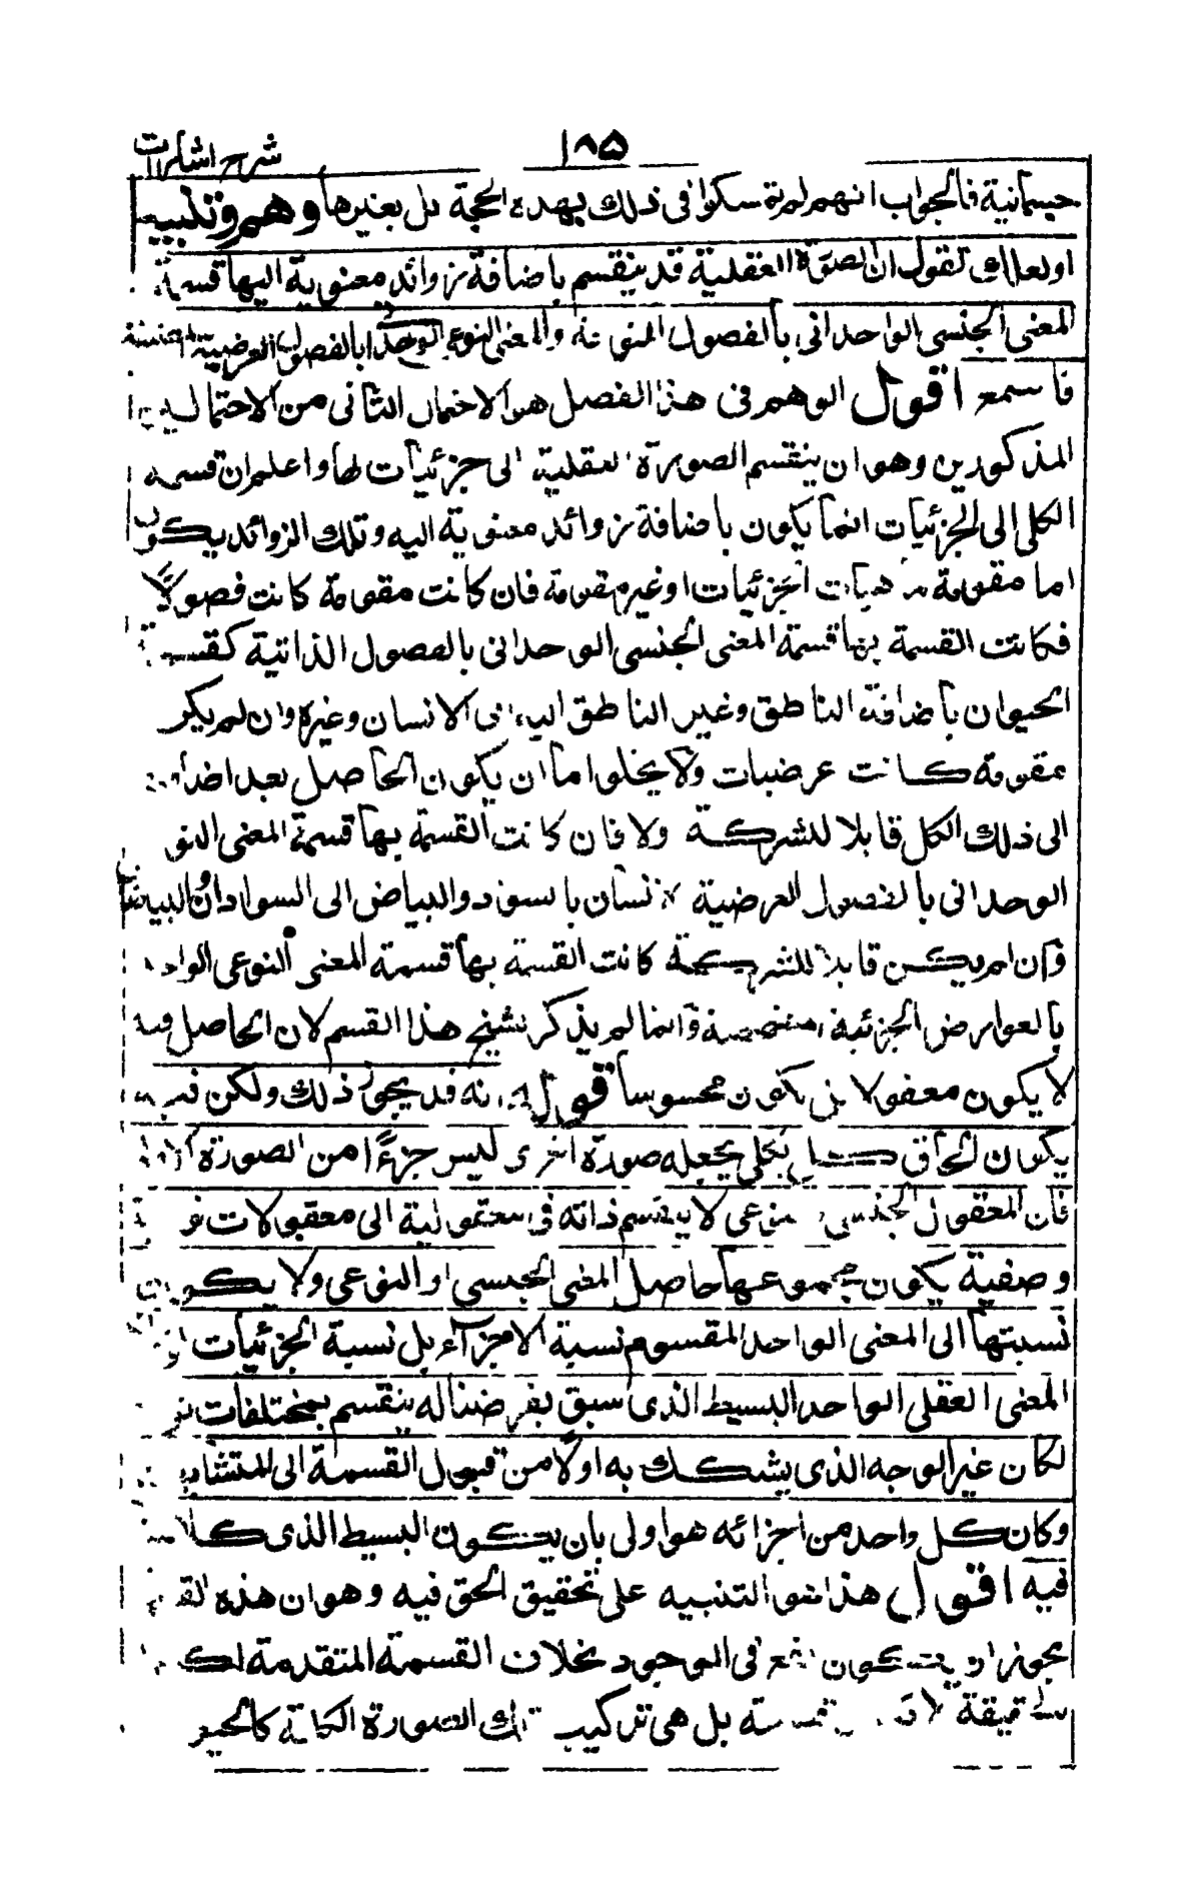 شرح اشارات ١٨٥
جسمانية فالجواب انهم لم يتمسكوا فى ذلك بهذه الحجة بل بغيرها وهم وتنبيه
او لعلك تقول ان الصورة العقلية قد ينقسم باضافة زوائد معنوية اليها قسمة
المعنى الجنسى الواحدانى بالفصول المنوعة والمعنى النوعى الواحد بالفصول العرضية المصنفة
فاسمع اقول الوهم فى هذا الفصل هو الاحتمال الثانى من الاحتمالين
المذكورين وهو ان ينقسم الصورة العقلية الى جزئيات لها واعلم ان قسمة
الكلى الى الجزئيات انما يكون باضافة زوائد معنوية اليه وتلك الزوائد يكون
اما مقومة لماهيات الجزئيات او غير مقومة فان كانت مقومة كانت فصولا
فكانت القسمة بها قسمة المعنى الجنسى الوحدانى بالفصول الذاتية كقسمة
الحيوان باضافة الناطق وغير الناطق اليه الى الانسان وغيره وان لم يكن
مقومة كانت عرضيات ولا يخلوا اما ان يكون الحاصل بعد اضافتها
الى ذلك الكل قابلا للشركة ولا فان كانت القسمة بها قسمة المعنى النو
الوحدانى بالفصول العرضية كالانسان بالسود والبياض الى السودان والبيضان
وان لم يكن قابلا للشركة كانت القسمة بها قسمة المعنى النوعى الواحد
بالعوارض الجزئية المشخصة وانما لم يذكر الشيخ هذا القسم لان الحاصل فيه
لا يكون معقولا بل يكون محسوسا قوله انه قد يجوز ذلك ولكن فيه
يكون الحاق كلى بكلى يجعله صورة اخرى ليس جزءًا من الصورة الاولى
فان المعقول الجنسى والنوعى لا ينقسم ذاته فى معقولية الى معقولات نو
وصنفية يكون مجموعها حاصل المعنى الجنسى او النوعى ولا يكون
نسبتها الى المعنى الواحد المقسوم نسبة الاجزاء بل نسبة الجزئيات ولو
المعنى العقلى الواحد البسيط الذى سبق بفرضنا له ينقسم بمختلفات
لكان غير الوجه الذى يشكك به اولا من قبول القسمة الى المتشابه
وكان كل واحد من اجزائه هو اولى بان يكون البسيط الذى كلامنا
فيه اقول هذا هو التنبيه على تحقيق الحق فيه وهو ان هذه القسمة
يجوز ان يكون فى الوجود بخلاف القسمة المتقدمة
بل هى تركيب تلك الصورة الكلية كالحيو